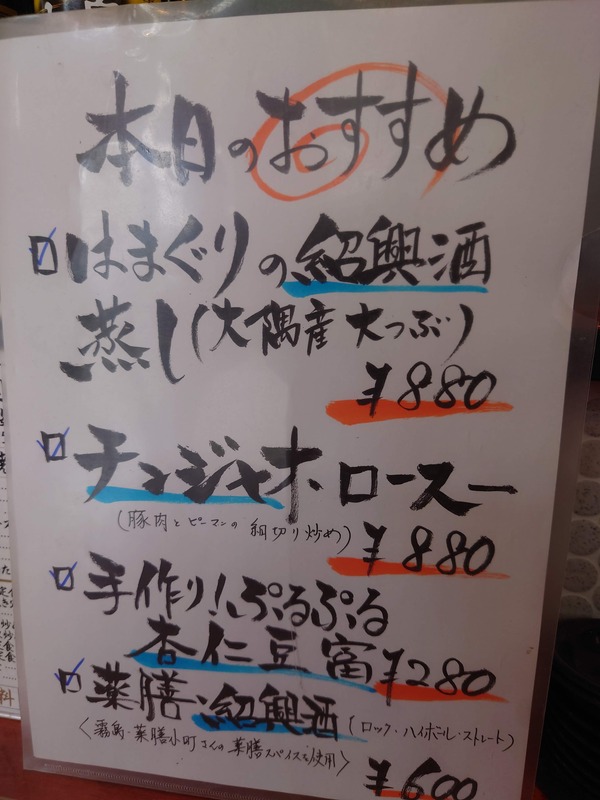 本日のおすすめ
はまぐりの紹興酒
蒸し(大隅産 大つぶ)
¥880
チンジャオ、ロースー
(豚肉とピーマンの細切り炒め)
¥880
手作り!ぷるぷる
杏仁豆富 ¥280
薬膳・紹興酒(ロック・ハイボール・ストレート)
〈霧島・薬膳小町さんの薬膳スパイスを使用〉
¥600